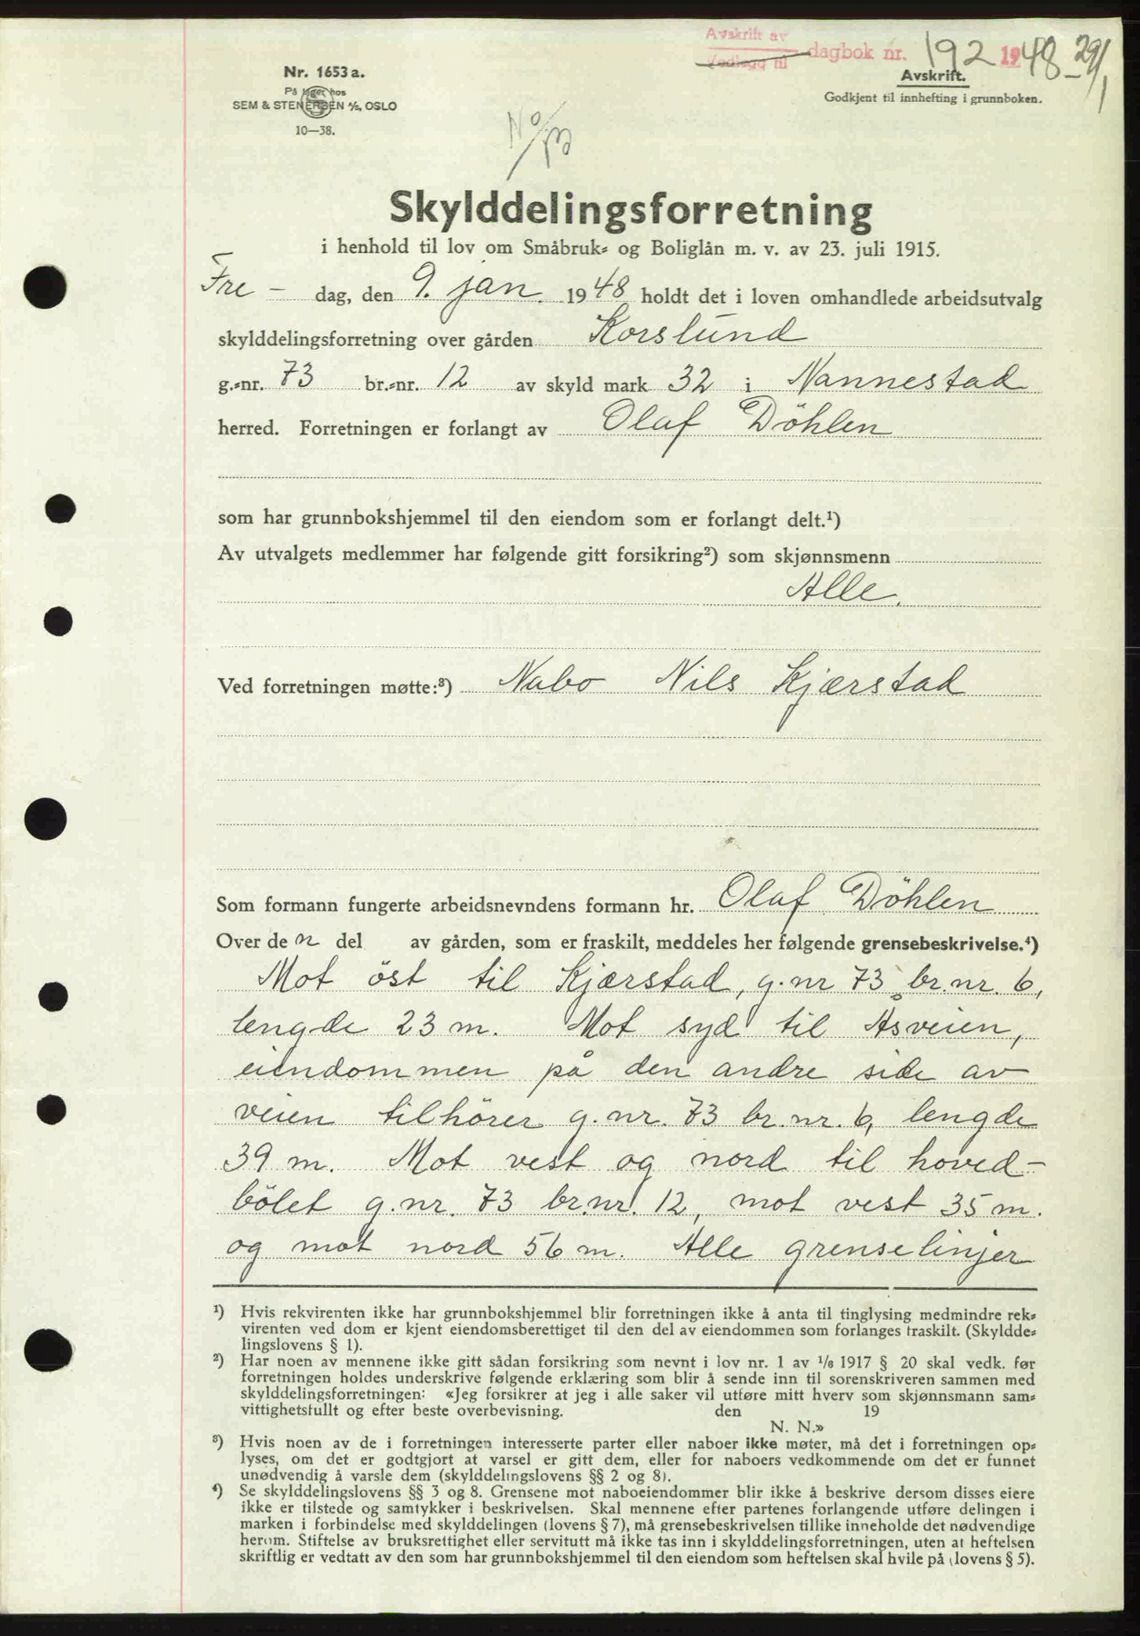 Avskrift av
Vedlegg til dagbok nr. 192 1948 - 29/1
Nr. 1653 a.
På lager hos
SEM & STENERSEN A/S, OSLO
10—38.
Avskrift.
Godkjent til innhefting i grunnboken.
Skylddelingsforretning
i henhold til lov om Småbruk- og Boliglån m. v. av 23. juli 1915.
Fre - dag, den 9. jan. 1948 holdt det i loven omhandlede arbeidsutvalg
skylddelingsforretning over gården Korslund
g.-nr. 73 br.-nr. 12 av skyld mark 32 i Nannestad
herred. Forretningen er forlangt av Olaf Döhlen
som har grunnbokshjemmel til den eiendom som er forlangt delt.¹)
Av utvalgets medlemmer har følgende gitt forsikring²) som skjønnsmenn
Alle.
Ved forretningen møtte:³) Nabo Nils Kjærstad
Som formann fungerte arbeidsnevndens formann hr. Olaf Döhlen
Over den del av gården, som er fraskilt, meddeles her følgende grensebeskrivelse.⁴)
Mot öst til Kjærstad, g.nr 73 br.nr. 6,
lengde 23 m. Mot syd til Åsveien,
eiendommen på den andre side av
veien tilhörer g.nr. 73 br.nr. 6, lengde
39 m. Mot vest og nord til hoved-
bölet g.nr. 73 br.nr. 12, mot vest 35 m.
og mot nord 56 m. Alle grenselinjer
¹) Hvis rekvirenten ikke har grunnbokshjemmel blir forretningen ikke å anta til tinglysing medmindre rek-
virenten ved dom er kjent eiendomsberettiget til den del av eiendommen som forlanges fraskilt. (Skyldde-
lingslovens § 1).
²) Har noen av mennene ikke gitt sådan forsikring som nevnt i lov nr. 1 av 1/6 1917 § 20 skal vedk. før
forretningen holdes underskrive følgende erklæring som blir å sende inn til sorenskriveren sammen med
skylddelingsforretningen: «Jeg forsikrer at jeg i alle saker vil utføre mitt hverv som skjønnsmann sam-
vittighetsfullt og efter beste overbevisning. den 19
N. N.»
³) Hvis noen av de i forretningen interesserte parter eller naboer ikke møter, må det i forretningen op-
lyses, om det er godtgjort at varsel er gitt dem, eller for naboers vedkommende om det er funnet
unødvendig å varsle dem (skylddelingslovens §§ 2 og 8).
⁴) Se skylddelingslovens §§ 3 og 8. Grensene mot naboeiendommer blir ikke å beskrive dersom disses eiere
ikke er tilstede og samtykker i beskrivelsen. Skal mennene efter partenes forlangende utføre delingen i
marken i forbindelse med skylddelingen (lovens § 7), må grensebeskrivelsen tillike inneholde det nødvendige
herom. Stiftelse av bruksrettighet eller servitutt må ikke tas inn i skylddelingsforretningen, uten at heftelsen
skriftlig er vedtatt av den som har grunnbokshjemmel til den eiendom som heftelsen skal hvile på (lovens § 5).